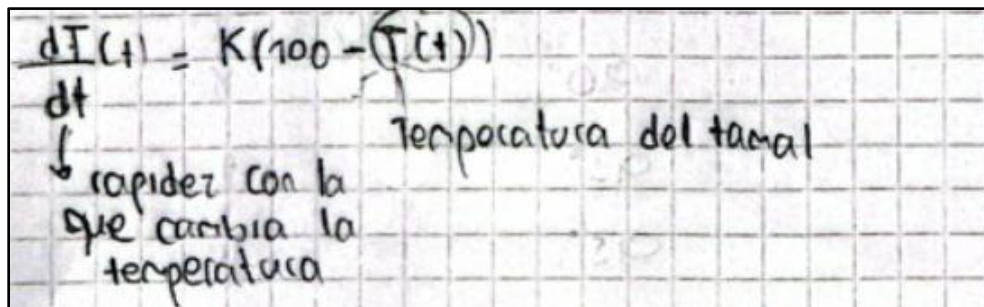 dT(t) = K(100 - T(t))
dt
Temperatura del tamal
rapidez con la
que cambia la
temperatura